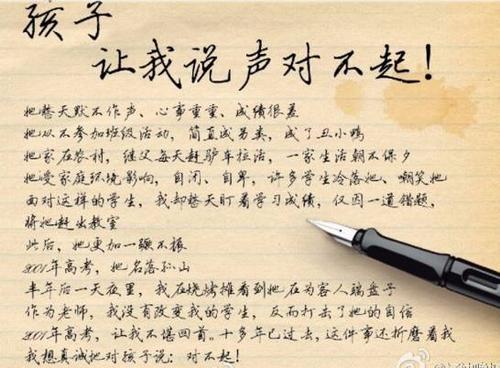 孩子
让我说声对不起！
她整天默不作声、心事重重、成绩很差
她从不参加班级活动，简直成另类，成了丑小鸭
她家在农村，继父每天赶驴车拉活，一家生活朝不保夕
她受家庭环境影响，自闭、自卑，许多学生冷落她、嘲笑她
面对这样的学生，我却整天盯着学习成绩，仅因一道错题，
将她赶出教室
此后，她更加一蹶不振
2001年高考，她名落孙山
半年后一天夜里，我在烧烤摊看到她在为客人端盘子
作为老师，我没有改变我的学生，反而打击了她的自信
2001年高考，让我不堪回首。十多年已过去，这件事还折磨着我
我想真诚地对孩子说：对不起！